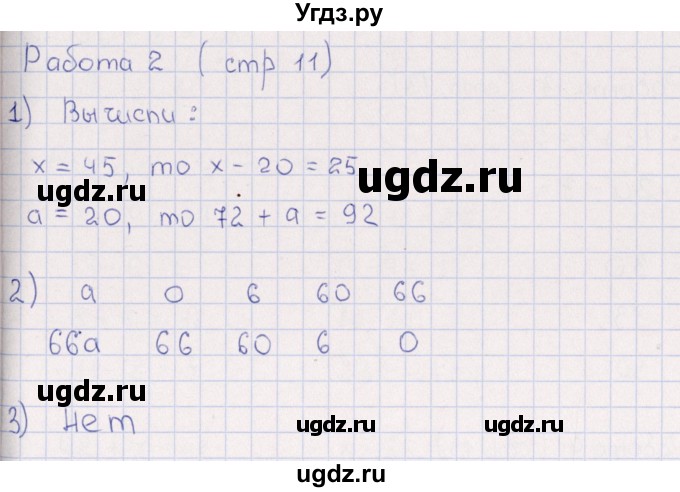 Угдз.ру
Работа 2 ( стр 11)
1) Вычисли :
x = 45, то x - 20 = 25
ugdz.ru
ugdz.ru
a = 20, то 72 + a = 92
2) a 0 6 60 66
66a 66 60 6 0
ugdz.ru
3) нет
ugdz.ru
ugdz.ru
ugdz.ru